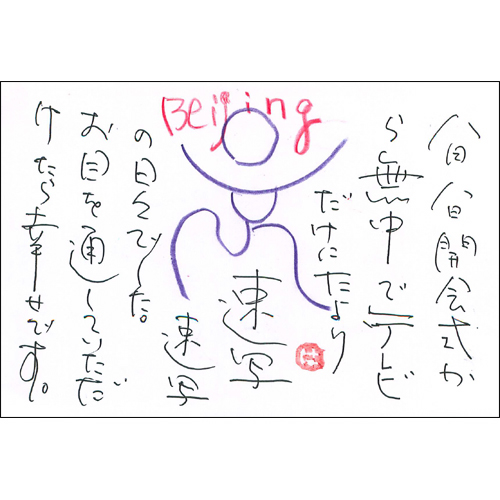 Beijing
八月八日開会式か
ら無中でテレビ
だけにたより
速写
速写
の日々でした。
お目を通していただ
けたら幸せです。